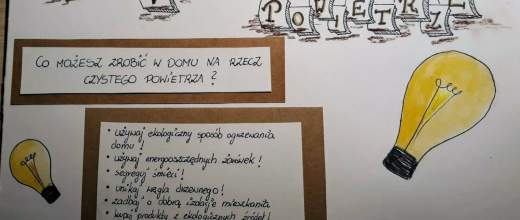 POWIETRZE
CO MOŻESZ ZROBIĆ W DOMU NA RZECZ
CZYSTEGO POWIETRZA?
• używaj ekologiczny sposób ogrzewania
domu!
• używaj energooszczędnych żarówek!
• segreguj śmieci!
• unikaj węgla drzewnego!
• zadbaj o dobrą izolację mieszkania
• kupuj produkty z ekologicznych źródeł!